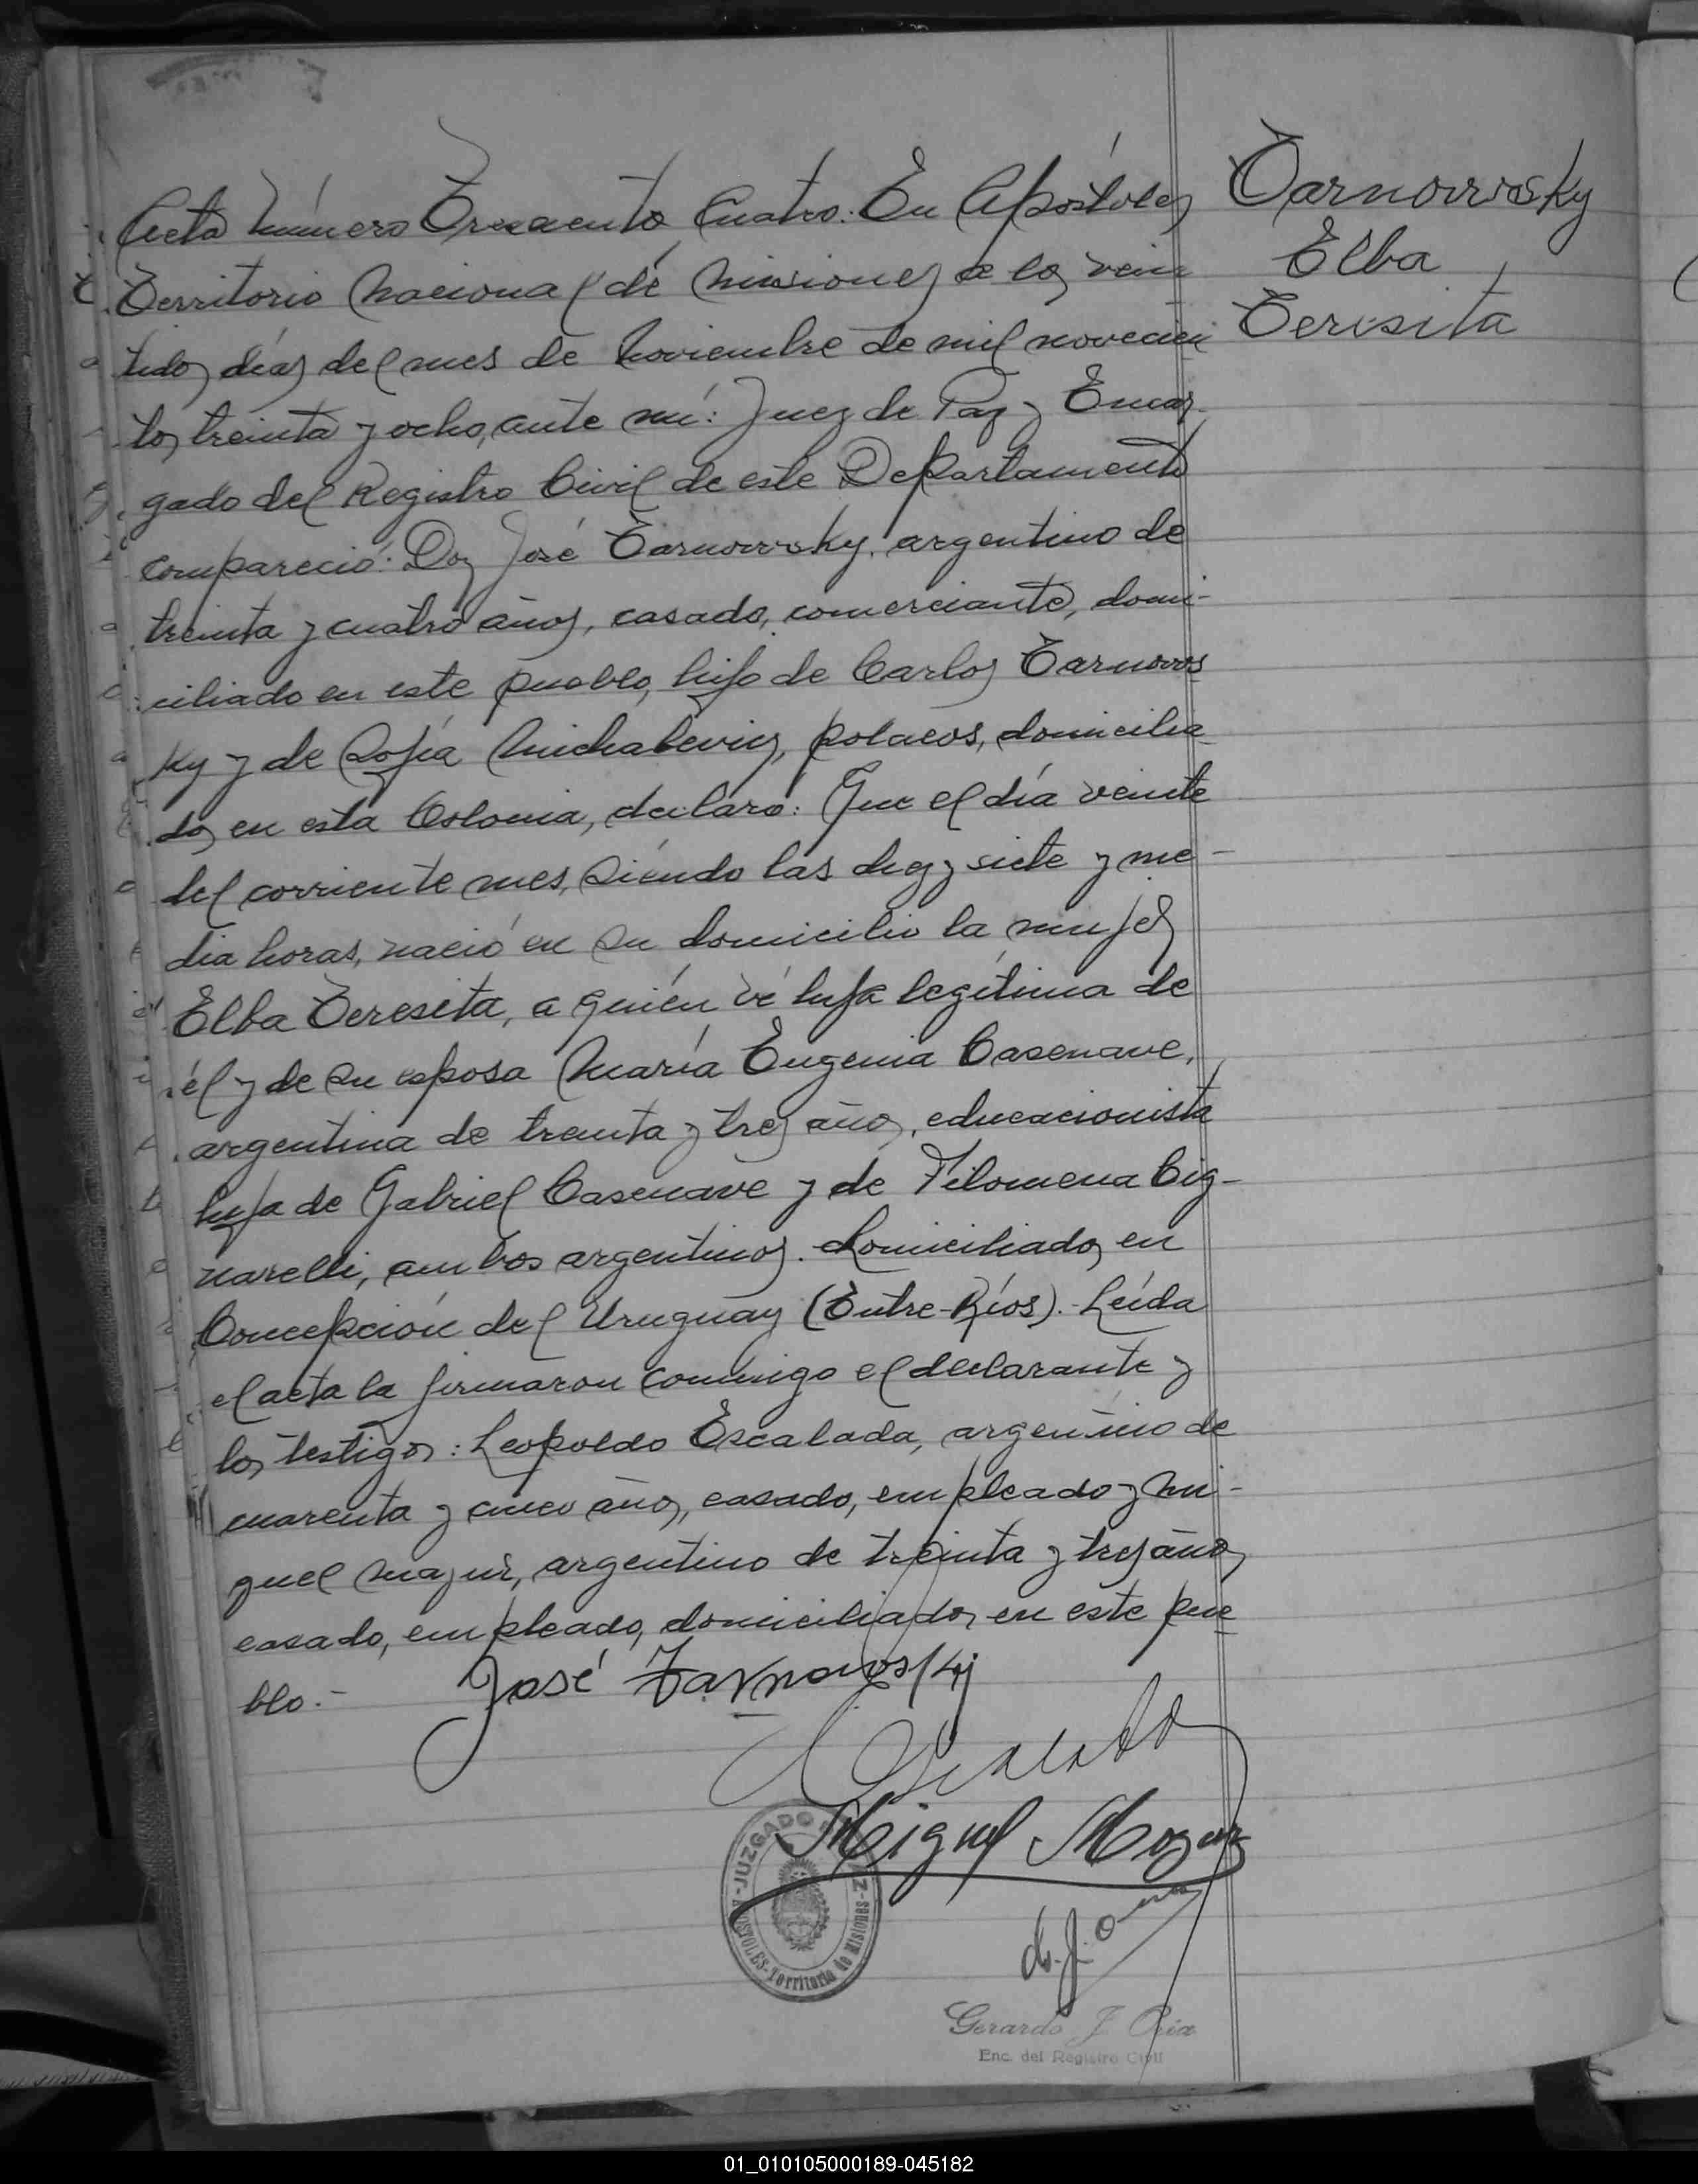 Tarnowsky
Elba
Teresita
Acta número Trescento Cuatro: En Apóstoles
Territorio Nacional de Misiones a los vein
tidos días del mes de Noviembre de mil novecien
tos treinta y ocho, ante mí: Juez de Paz y Encar-
gado del Registro Civil de este Departamento
compareció: Don José Tarnowsky, argentino de
treinta y cuatro años, casado, comerciante, domi-
ciliado en este pueblo, hijo de Carlos Tarnows
ky y de Sofía Michalevicz, polacos, domicilia
dos en esta Colonia, declaró: Que el día veinte
del corriente mes, siendo las diez y siete y me-
dia horas, nació en su domicilio la mujer
Elba Teresita, a quién vé hija legítima de
él y de su esposa María Eugenia Casenave,
argentina de treinta y tres años, educacionista
hija de Gabriel Casenave y de Filomena Cig-
narelli, ambos argentinos. domiciliados en
Concepción del Uruguay (Entre-Ríos).- Leída
el acta la firmaron conmigo el declarante y
los testigos: Leopoldo Escalada, argentino de
cuarenta y cinco años, casado, empleado y Mi-
guel Mazur, argentino de treinta y tres años,
casado, empleado, domiciliados en este pue
blo.-
José Tarnowski
Escalada
Miguel Mozur
JUZGADO DE PAZ
APOSTOLES-Territorio de Misiones
Gerardo J. Oria
Enc. del Registro Civil
01_010105000189-045182